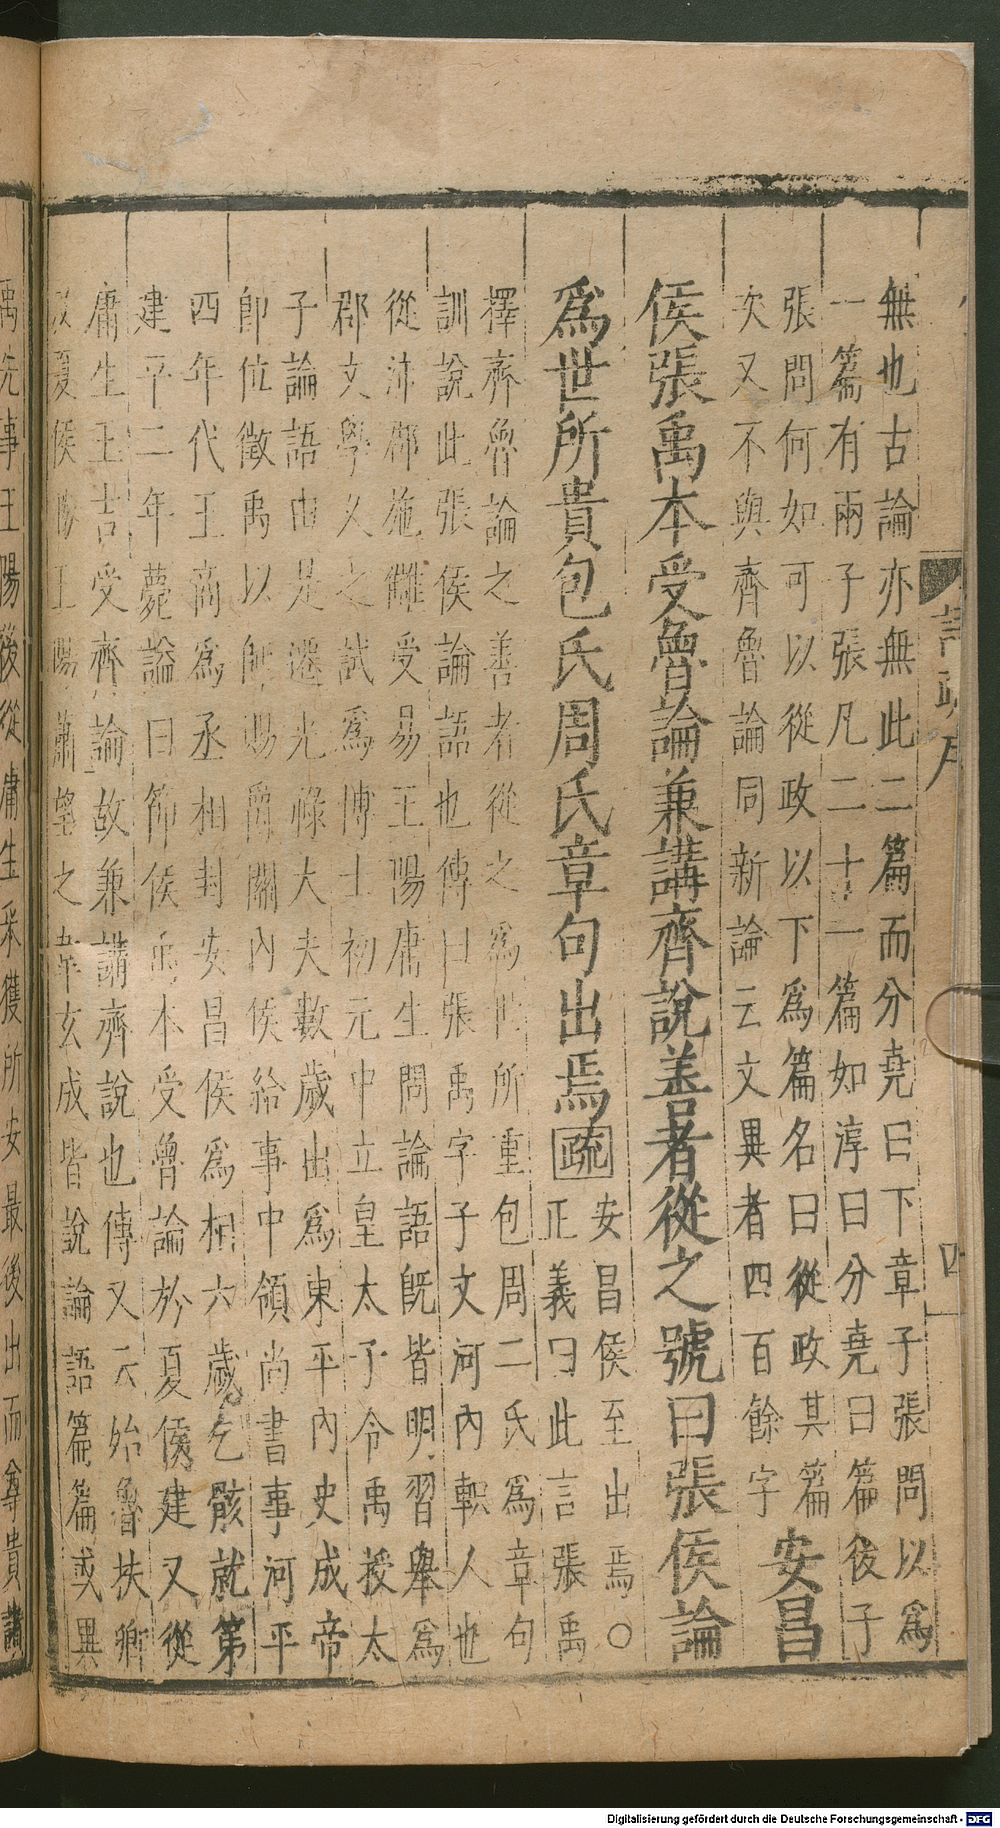 語疏序
四
無也古論亦無此二篇而分堯曰下章子張問以爲
一篇有兩子張凡二十一篇如淳曰分堯曰篇後子
張問何如可以從政以下爲篇名曰從政其篇
次又不與齊魯論同新論云文異者四百餘字
安昌
侯張禹本受魯論兼講齊說善者從之號曰張侯論
爲世所貴包氏周氏章句出焉疏
安昌侯至出焉○
正義曰此言張禹
擇齊魯論之善者從之爲世所重包周二氏爲章句
訓說此張侯論語也傳曰張禹字子文河內軹人也
從沛郡施讎受易王陽庸生問論語既皆明習舉爲
郡文學久之試爲博士初元中立皇太子令禹授太
子論語由是遷光祿大夫數歲出爲東平內史成帝
即位徵禹以師賜爵關內侯給事中領尚書事河平
四年代王商爲丞相封安昌侯爲相六歲乞骸就第
建平二年薨諡曰節侯禹本受魯論於夏侯建又從
庸生王吉受齊論故兼講齊說也傳又云始魯扶卿
及夏侯勝王陽蕭望之韋玄成皆說論語篇篇或異
禹先事王陽後從庸生采獲所安最後出而尊貴諸
Digitalisierung gefördert durch die Deutsche Forschungsgemeinschaft - DFG